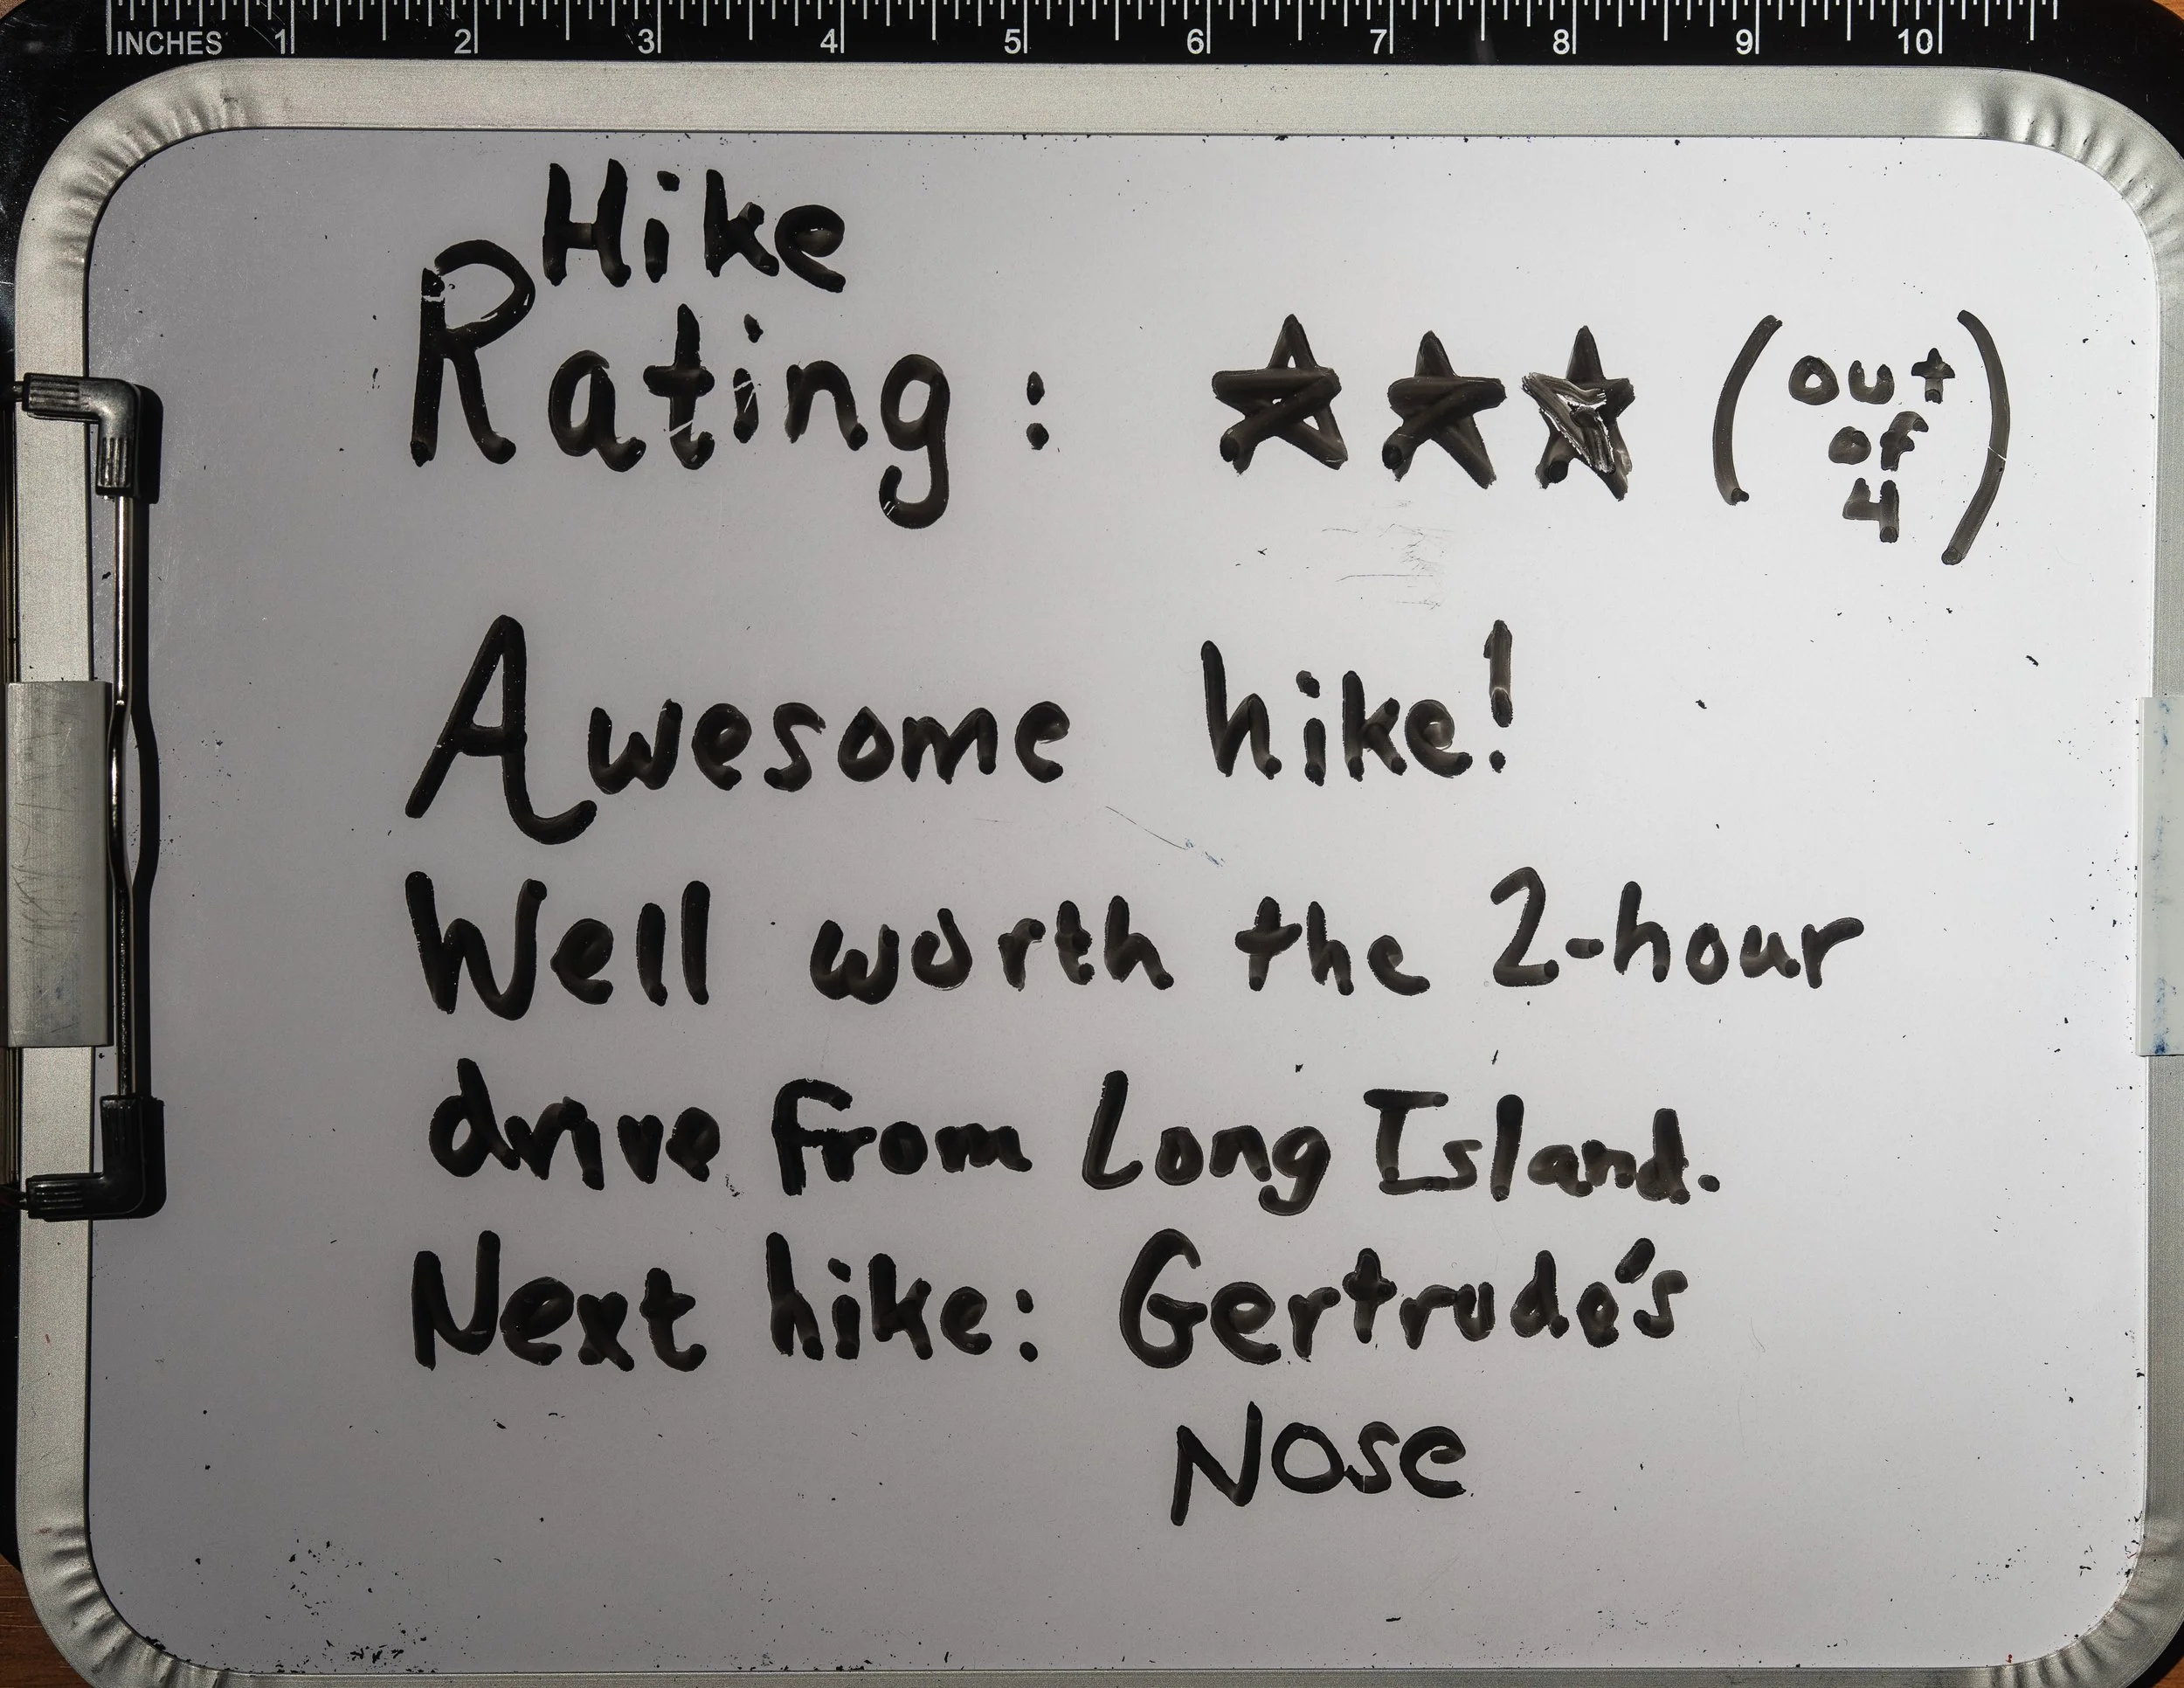 INCHES 1 2 3 4 5 6 7 8 9 10
Hike
Rating: ★★★ (out
of
4)
Awesome hike!
Well worth the 2-hour
drive from Long Island.
Next hike: Gertrude's
Nose